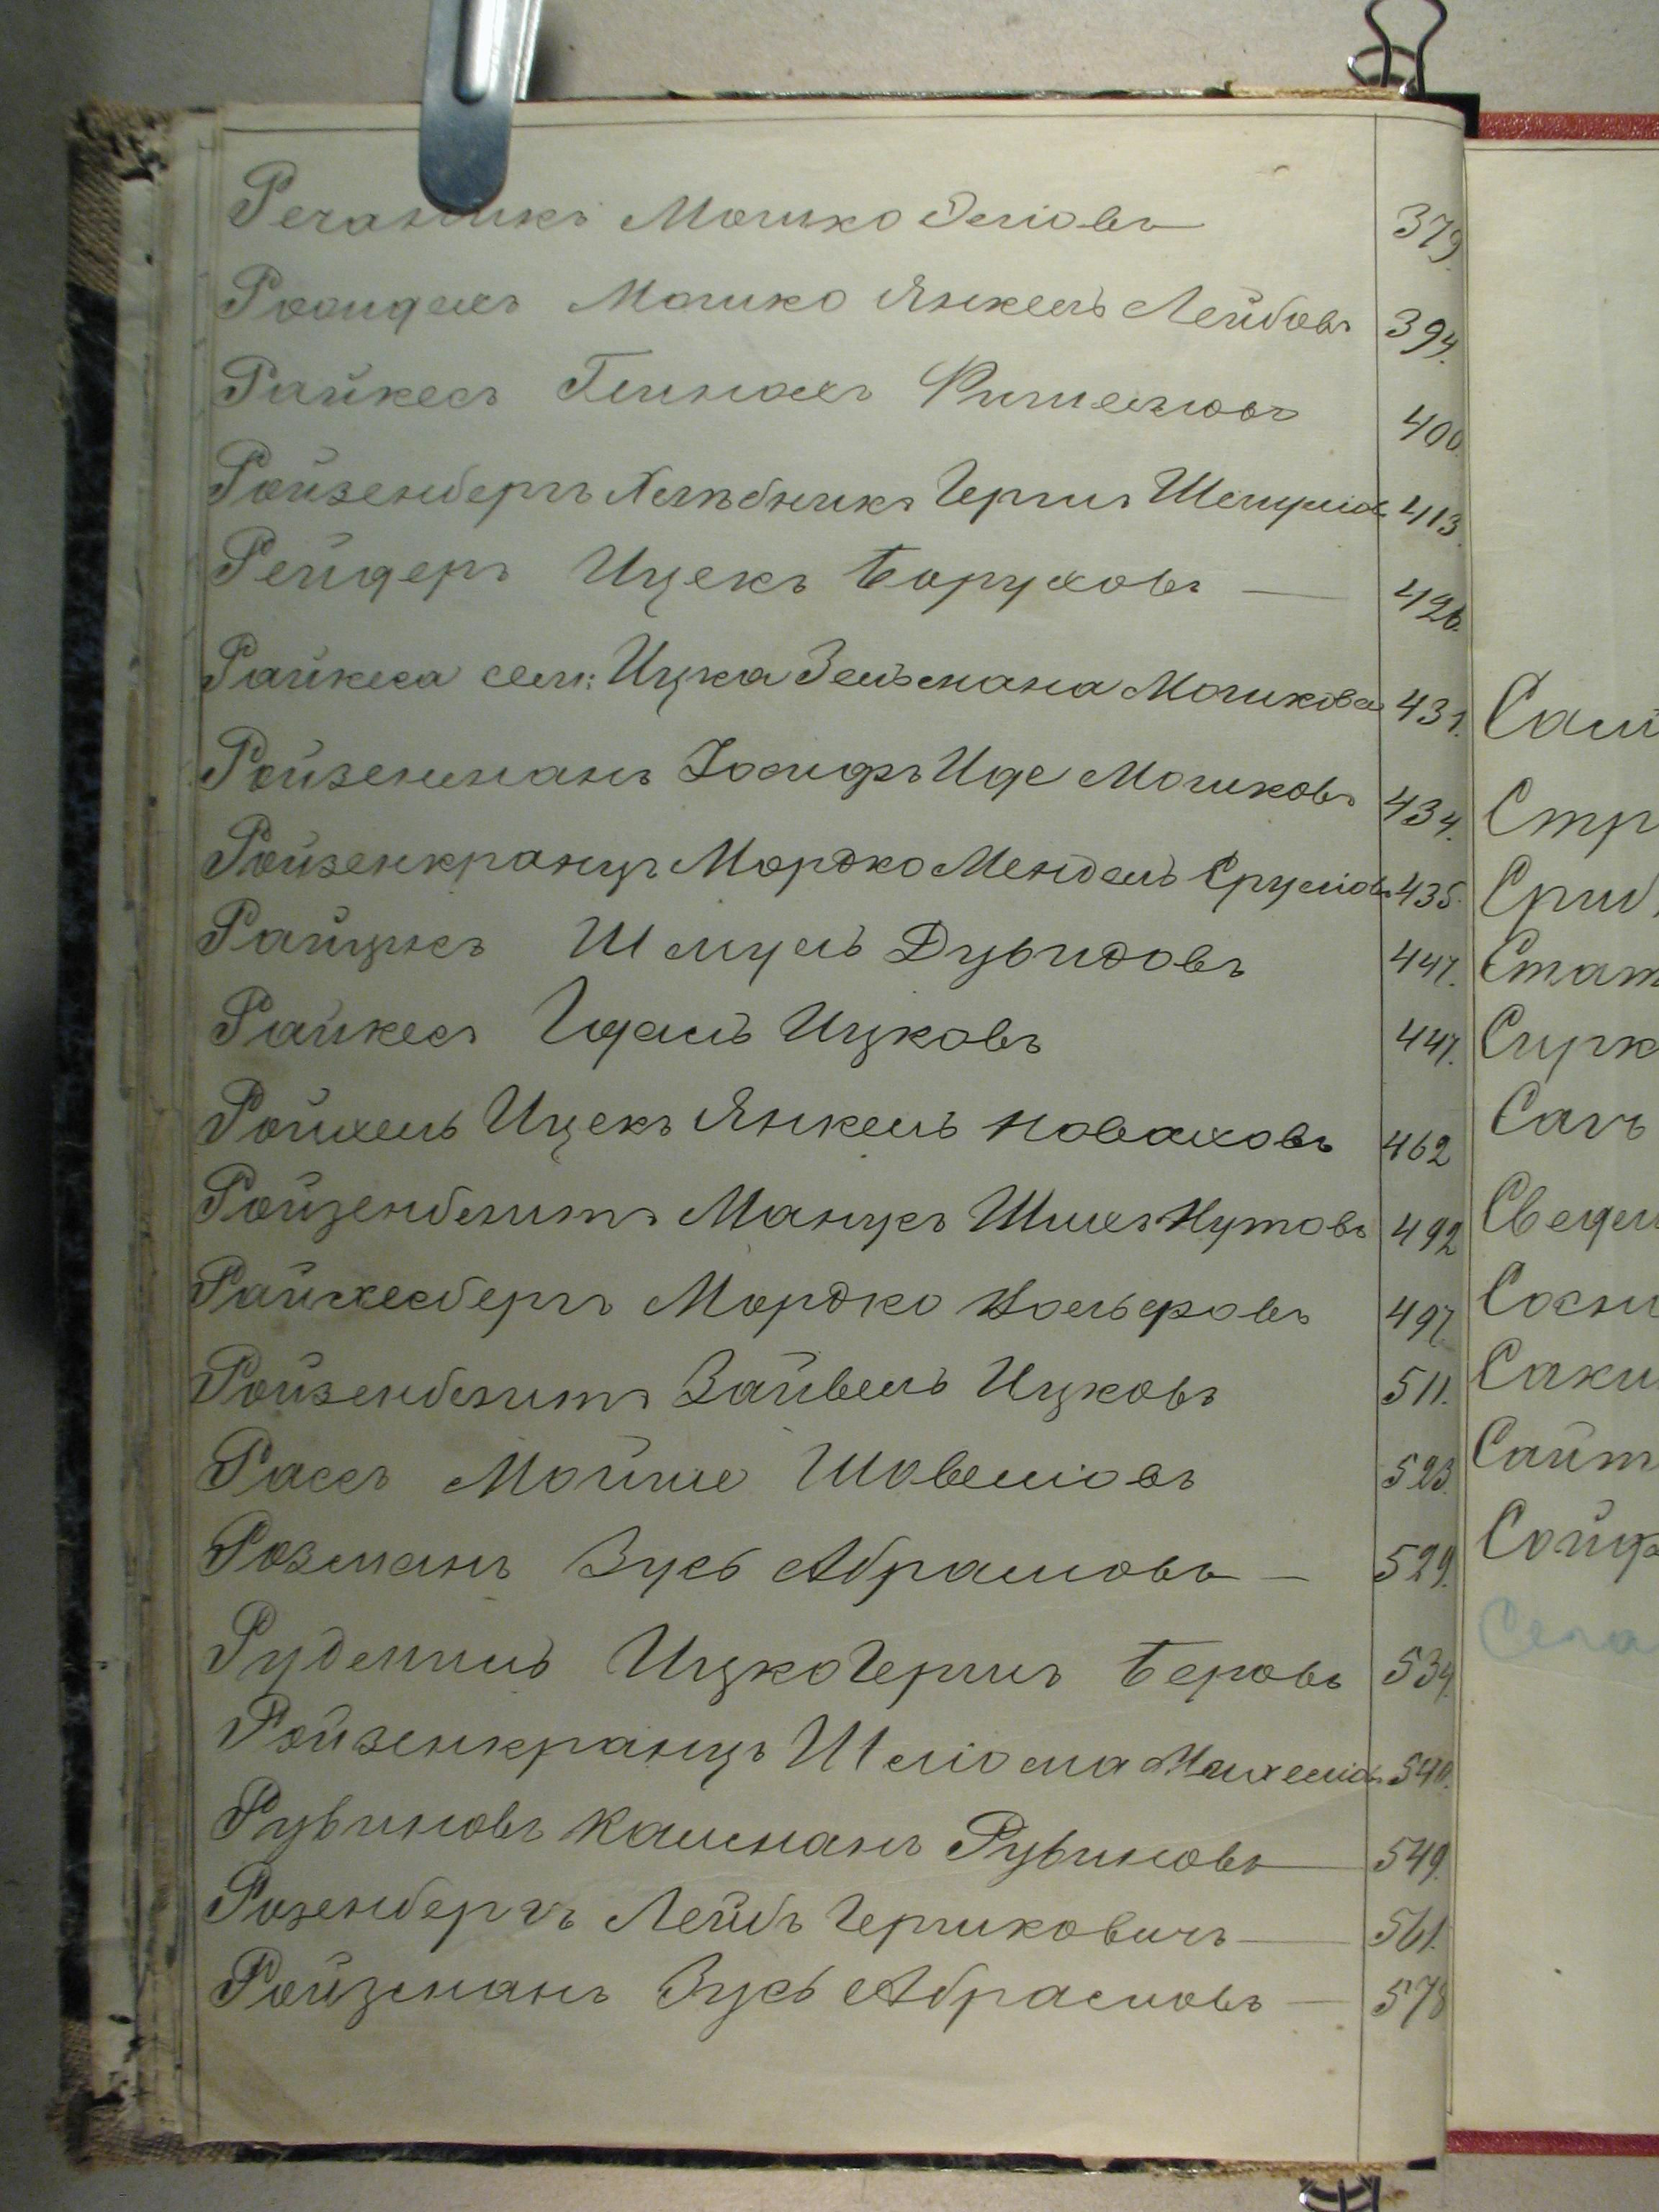 Речаникъ Мошко Элiовъ 379.
Мошко Янкель Лейбовъ 394.
Райкесъ Пинхасъ 400.
Ройзенбергъ Хлѣбникъ Гершъ Шмулiов. 413.
Рейдеръ Ицекъ Боруховъ — 426.
Райкеса сем: Ицка Зельмана Мошкова 431.
Ройзенманъ Iосифъ Иде Мошковъ 434.
Ройзенкранцъ Мордко Мендель Срулiовъ 435.
Шмуль Дувидовъ 447.
Райкесъ Гдаль Ицковъ 447.
Ройхель Ицекъ Янкель Новаховъ 462
Ройзенблитъ Манусъ Шихъ Нутовъ 492
Райхесбергъ Мордко Вольфовъ 497.
Ройзенблитъ Зайвель Ицковъ 511.
Рассъ Мойше Шовелiовъ 523.
Розманъ Зусь Абрамовъ — 529.
Ицко Гершъ Беровъ 534.
Ройзенкранцъ Шлiома Михелiов. 540.
Рувиновъ Калманъ Рувиновъ — 549.
Розенбергъ Лейбъ Гершковичъ — 561.
Ройзманъ Зусь Абрамовъ — 578
Стр
Сирк
Сосн
Сайт
Сойф